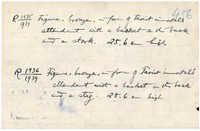 456
R 1935/1979 Figure, bronze, in form of Taoist immortal's
attendant with a basket on the back
and a stork. 25.6 cm high
R 1936/1979 Figure, bronze, in form of Taoist immortal's
attendant with a basket on the back
and a stag. 25.6 cm high